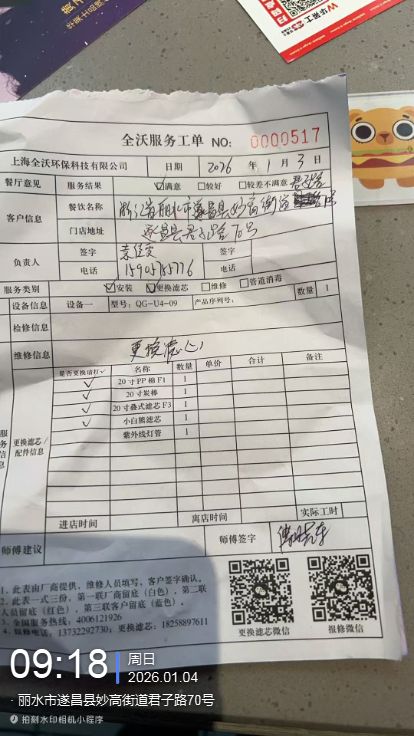 全沃服务工单 NO: 0000517
上海全沃环保科技有限公司 日期 2026 年 1 月 3 日
餐厅意见 服务结果 ☑满意 □较好 □较差不满意
客户信息 餐饮名称 浙江省丽水市遂昌县妙高街道
门店地址 遂昌县君子路70号
负责人 签字 签字
电话 电话
服务类别 □安装 ☑更换滤芯 □维修 □管道消毒
设备信息 设备一 型号: QG-U4-09 产品序列号: 数量 1
检修信息
维修信息 更换滤心
是否更换请打✓ 名称 数量 单价 合计 备注
✓ 20寸PP棉F1 1
✓ 20寸炭棒 1
✓ 20寸叠式滤芯F3 1
✓ 小白熊滤芯 1
紫外线灯管 1
更换滤芯/配件信息
进店时间 离店时间 实际工时
师傅建议 师傅签字
1. 此表由厂商提供, 维修人员填写, 客户签字确认。
2. 此表一式三份, 第一联厂商留底(白色), 第二联
人员留底(红色), 第三联客户留底(蓝色)
3. 全国服务热线: 4006121926
4. 报修电话: 13732292730; 更换滤芯: 18258897611
更换滤芯微信 报修微信
09:18 周日
2026.01.04
丽水市遂昌县妙高街道君子路70号
拍刻水印相机小程序